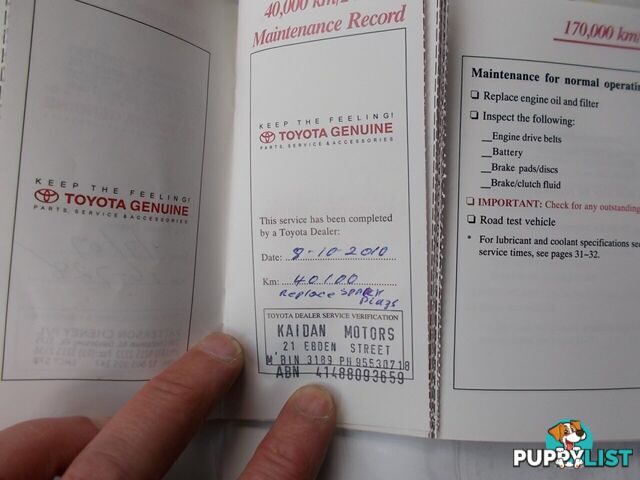 KEEP THE FEELING!
TOYOTA GENUINE
PARTS, SERVICE & ACCESSORIES
PATTERSON CHENEY
40,000 km/2
Maintenance Record
KEEP THE FEELING!
TOYOTA GENUINE
PARTS, SERVICE & ACCESSORIES
This service has been completed
by a Toyota Dealer:
Date: 8-10-2010
Km: 40100
Replace Spark
Plugs
TOYOTA DEALER SERVICE VERIFICATION
KAIDAN MOTORS
21 EBDEN STREET
M'BIN 3189 PH 95530718
ABN 41488093659
170,000 km/
Maintenance for normal operatin
Replace engine oil and filter
Inspect the following:
Engine drive belts
Battery
Brake pads/discs
Brake/clutch fluid
IMPORTANT: Check for any outstanding
Road test vehicle
* For lubricant and coolant specifications see
service times, see pages 31–32.
PUPPYLIST